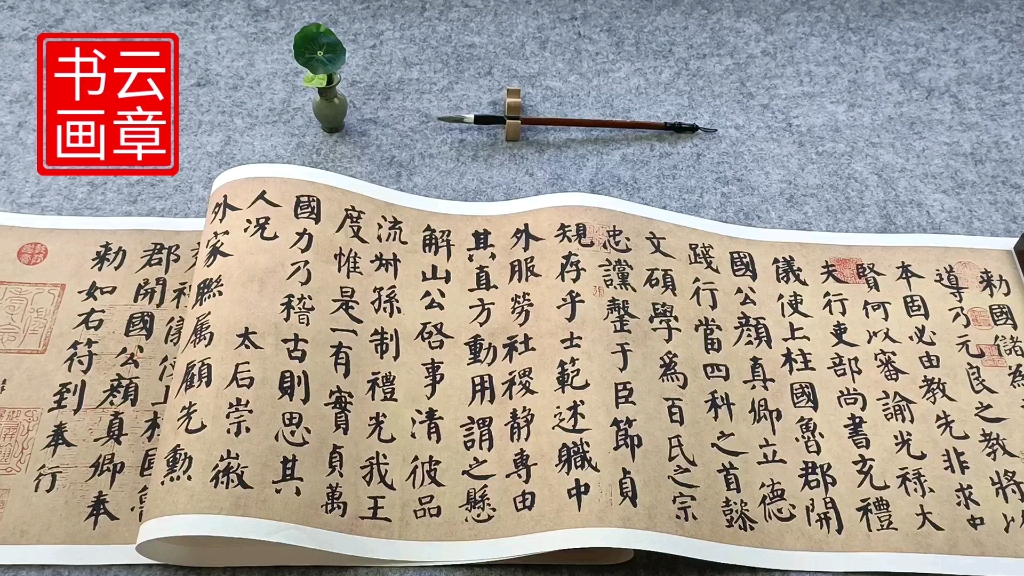 云章
书画
勅國儲為
導乃元良之教將以
本固必由教先非求中
賢何以審諭光祿大
夫行吏部尚書充禮
儀使上柱國魯郡開
國公顔真卿立德
踐行當四科之首懿
文碩學爲百氏之宗
忠讜罄于臣節貞
規存乎士範述職中
外服勞社稷静專由
其直方動用謂之懸
解山公啓事清彼品
流叔孫制禮光我王
度惟是一有實貞萬
國力乃稽古則思其
人况太后崇徽
外家聯属顧先勲
郡開國公顔真卿奉
勅如右符到奉行